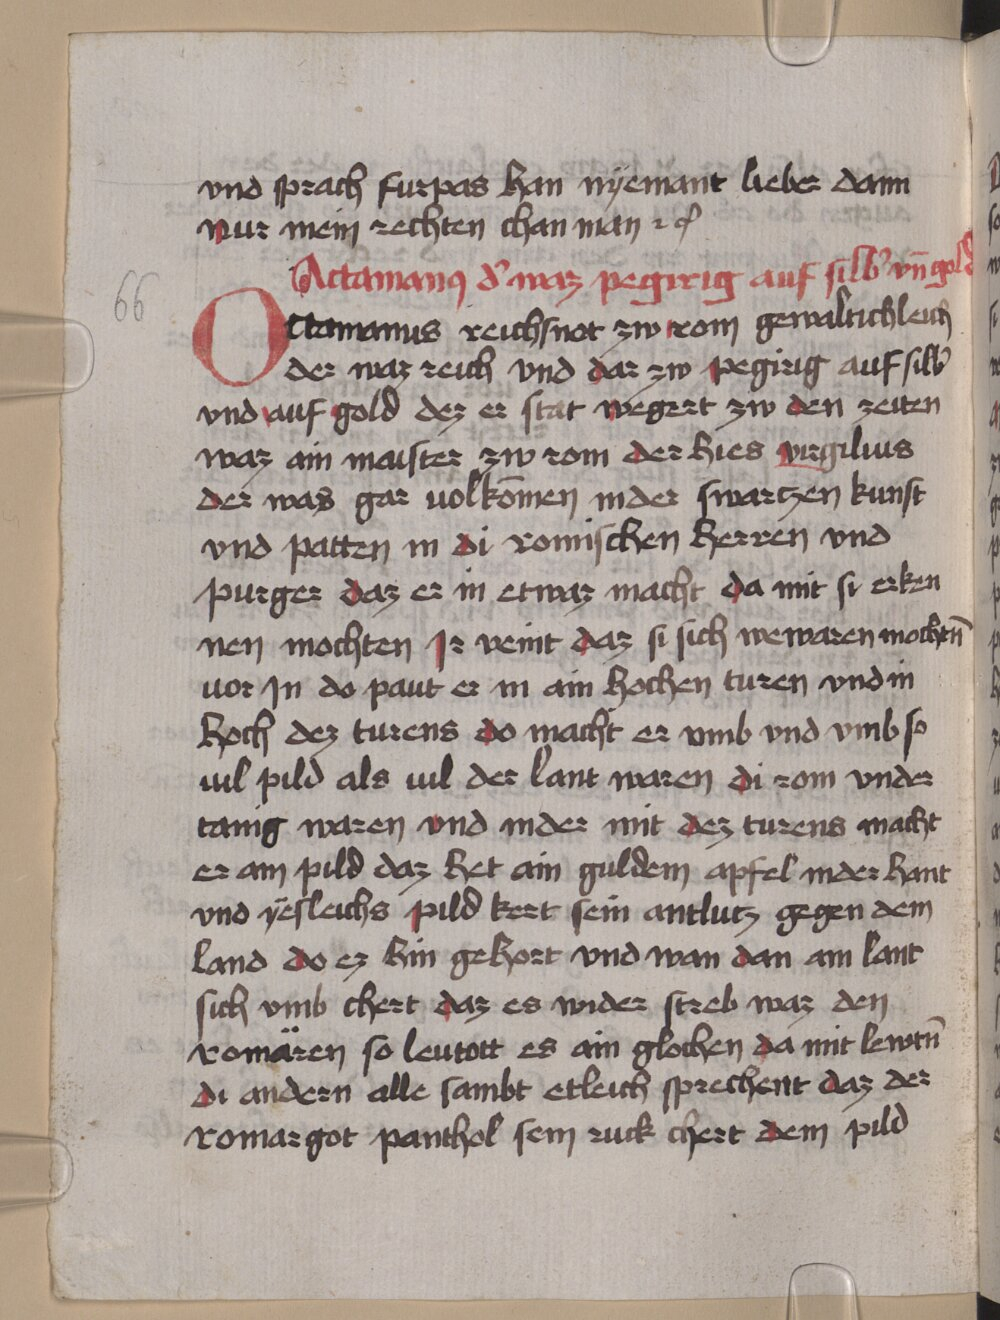 vnd sprach furpas han nÿemant lieber dann
nur mein rechten chan man
66
Octamanus der waz pegirig auf silber vnd gold
Octamanus reichsnot zw rom gewaltichleich
der waz reich vnd dar zw pegirig auf silber
vnd auf gold dez er stat wegert zw den zeiten
waz ain maister zw rom der hies virgilius
der was gar uolkōmen in der swartzen kunst
vnd patten in di romischen herren vnd
purger daz er in etwaz macht da mit si erken
nen mochten Ir veint daz si sich wewaren mochtn̄
uor In do paut er in ain hochen turen vnd in
hoch dez turens do macht er vmb vnd vmb so
uil pild als uil der lant waren di rom vnder
tanig waren vnd in der mit dez turens macht
er ain pild daz het ain guldein apfel in der hant
vnd ÿesleichs pild kert sein antlutz gegen dem
land do ez hin gehort vnd wan dan ain lant
sich vmb chert daz es wider streb waz den
romären so leutott es ain glochen da mit lewtn̄
di andern alle sambt etleich sprechent daz der
romar got panthol sein ruck chert dem pild